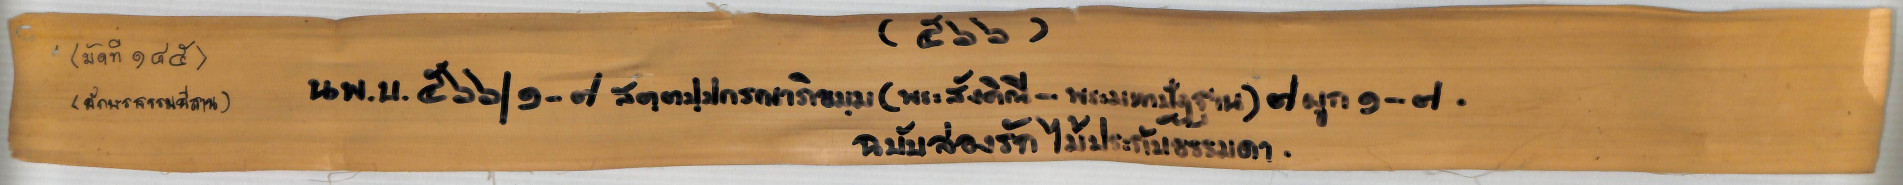 (๕๖๖)
(มัดที่ ๑๔๕)
น.พ.บ. ๕๖๖/๑-๗ สตฺตปฺปกรณาภิธมฺม (พระสังคิณี - พระมหาปัฏฐาน) ๗ ผูก ๑-๗.
(อักษรธรรมอีสาน)
ฉบับล่องรัก ไม้ประกับธรรมดา.